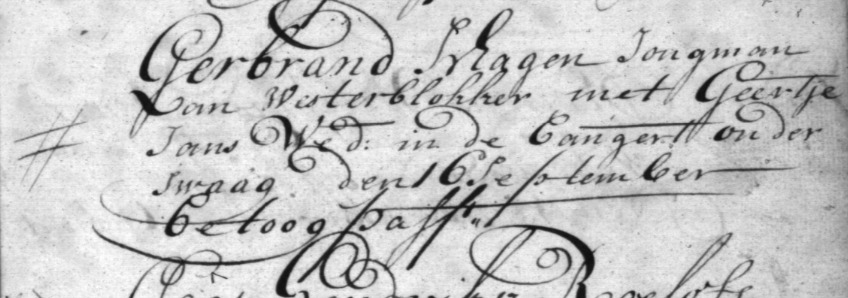 Gerbrand Schagen Jongman
van Westerblokker met Geertje
Jans Wed: in de Bangert onder
Swaag den 16 September
betoog pass:
Roelofs